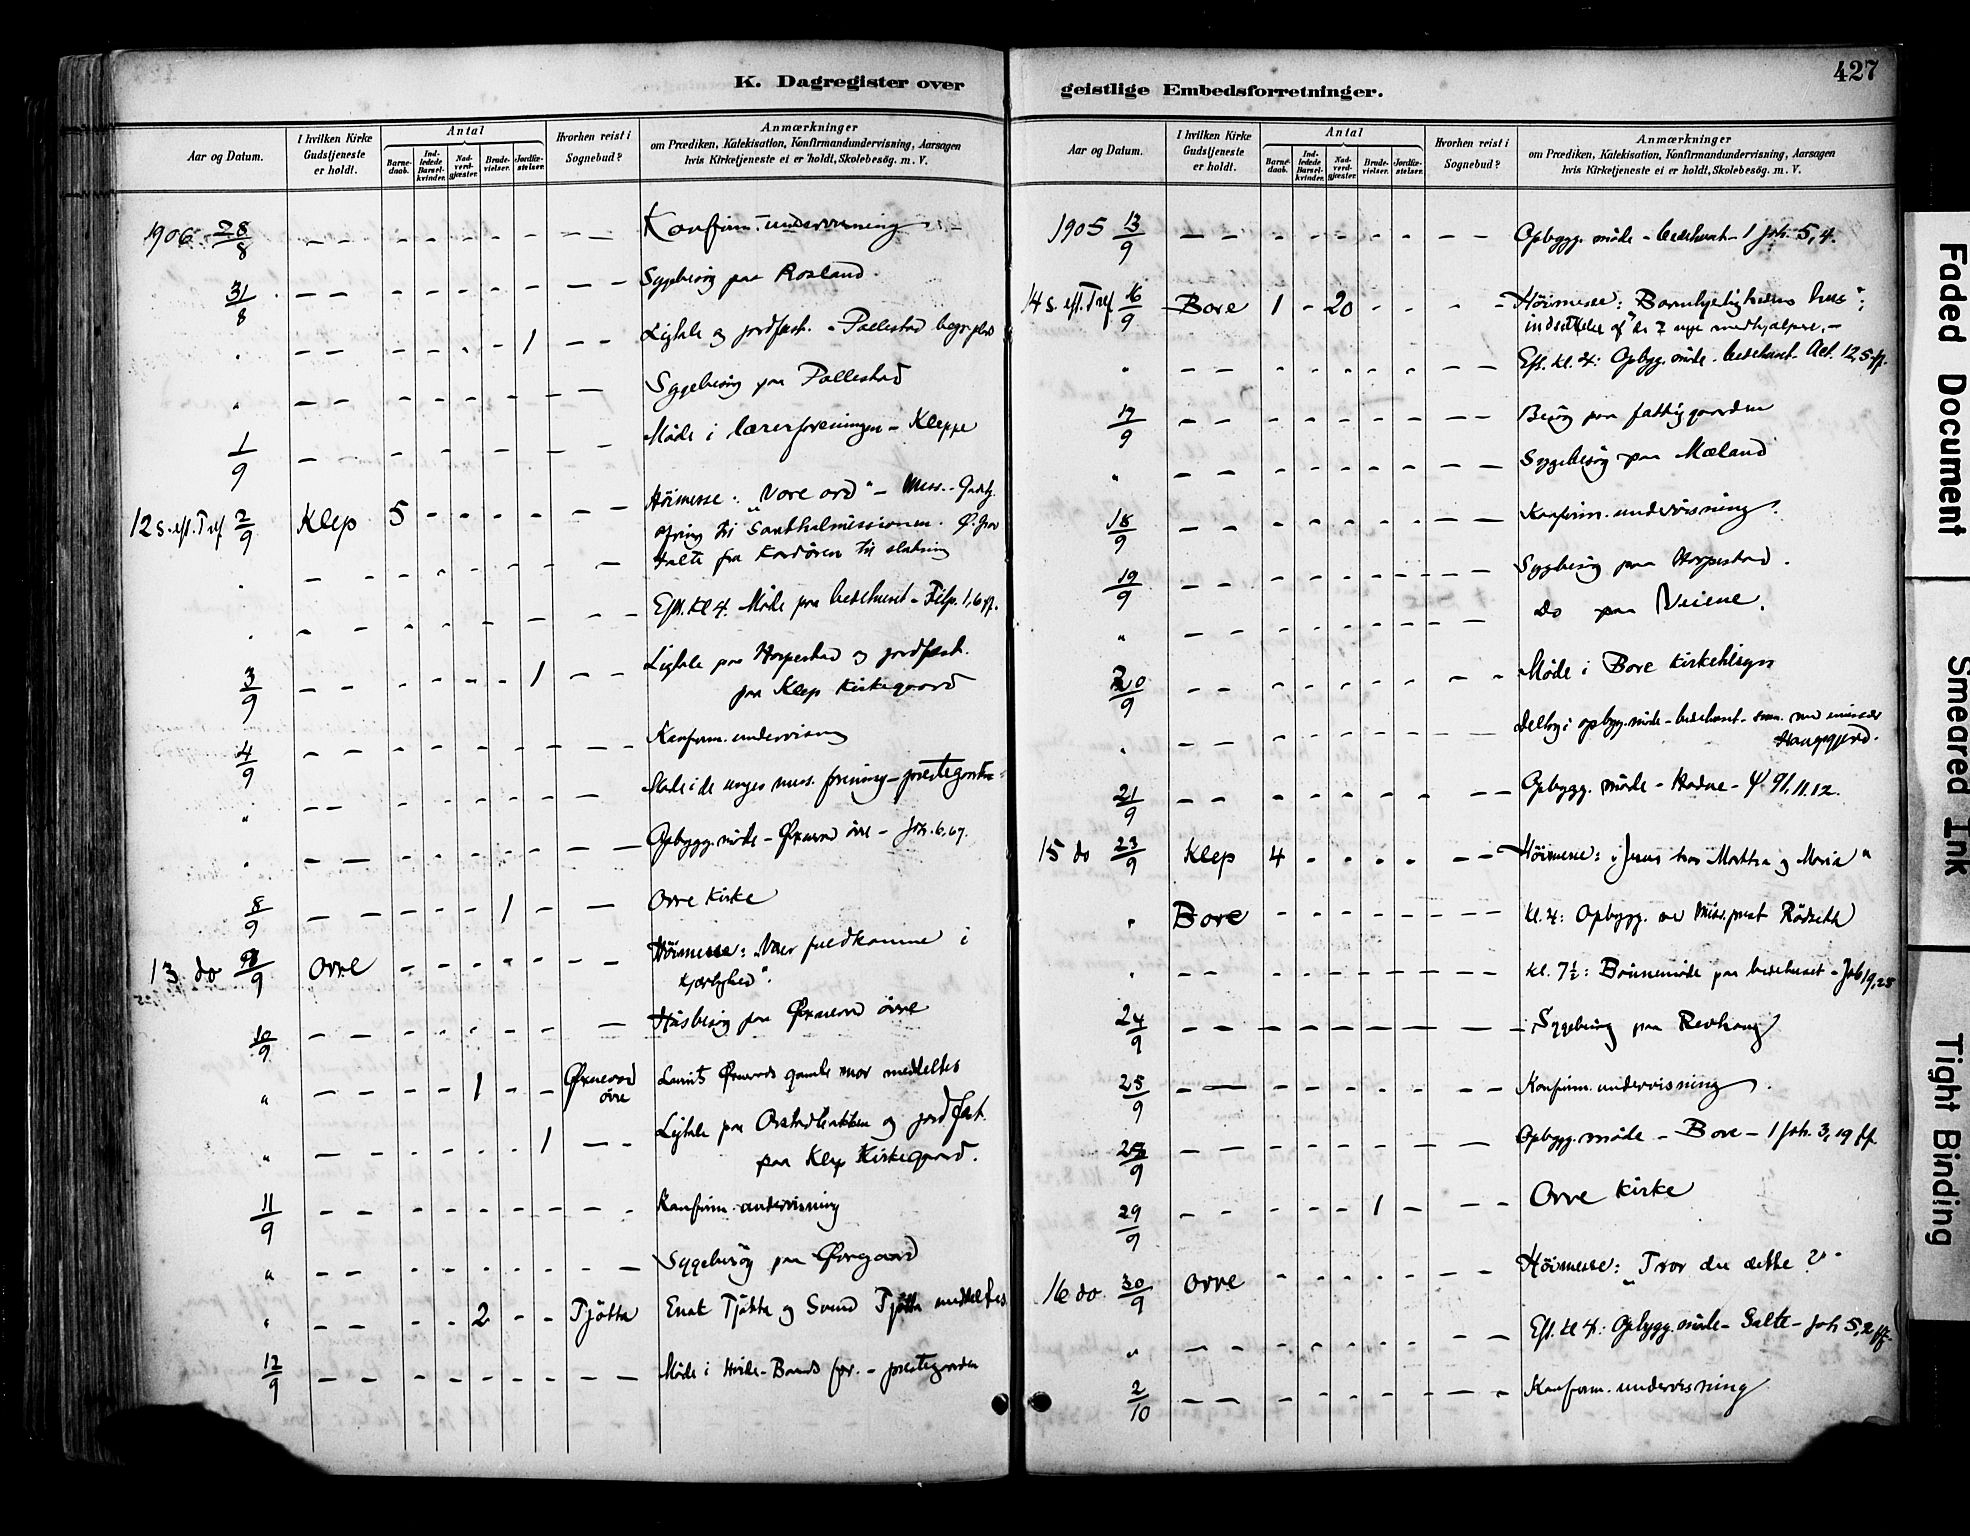 K. Dagregister over
Aar og Datum.
I hvilken Kirke Gudstjeneste er holdt.
Antal
Barne-daab.
Ind-ledede Barsel-kvinder.
Nad-verd-gjæster.
Brude-vielser.
Jordfæ-stelser.
Hvorhen reist i Sognebud?
Anmærkninger
om Prædiken, Katekisation, Konfirmandundervisning, Aarsagen
hvis Kirketjeneste ei er holdt, Skolebesøg. m. V.
1906 28/8 Konfirm.-undervisning
31/8 Sygebesøg paa Rosland.
" 1 Ligtale og jordfæst. - Pollestad begr.plads
" Sygebesøg paa Pollestad
1/9 Møde i lærerforeningen - Kleppe
12 s. eft. Tref. 2/9 Klep 5 Høimesse: "Vore ord" - Miss.-
ofring til Santhalmissionen.
" Eft. kl 4. Møde paa bedehuset - Filip. 1,6 ff.
3/9 1 Ligtale paa Horpestad og jordfæst.
paa Klep Kirkegaard
4/9 Konfirm. undervisning
" Møde i de unges miss. forening - prestegaarden
" Opbygg. møde - Øxnevad øvre - Joh. 6,67.
8/9 1 Orre Kirke
13 do 9/9 Orre Høimesse: "Vær fuldkomne i
kjærlighed".
10/9 Husbesøg paa Øxnevad øvre
" 1 Øxnevad øvre Laurits Øxnevads gamle mor meddeltes
" 1 Ligtale paa Orstadbakken og jordfæst.
paa Klep Kirkegaard.
11/9 Konfirm. undervisning
" Sygebesøg paa Øvregaard
" 2 Tjøtta Enat Tjøtta og Svend Tjøtta meddeltes
12/9 Møde i Hvide-Baands for. - prestegaarden
427
geistlige Embedsforretninger.
Aar og Datum.
I hvilken Kirke Gudstjeneste er holdt.
Antal
Barne-daab.
Ind-ledede Barsel-kvinder.
Nad-verd-gjæster.
Brude-vielser.
Jordfæ-stelser.
Hvorhen reist i Sognebud?
Anmærkninger
om Prædiken, Katekisation, Konfirmandundervisning, Aarsagen
hvis Kirketjeneste ei er holdt, Skolebesøg. m. V.
1905 13/9 Opbygg. møde - bedehuset - 1 Joh 5,4.
14 s. eft. Tref. 16/9 Bore 1 - 20 Høimesse: "Barmhjertighedens hus";
indsættelse af de 7 nye medhjælpere. -
" Eft. kl. 4: Opbygg. møde - bedehuset - Act. 12,5 ff.
17/9 Besøg paa fattiggaarden
" Sygebesøg paa Mæland
18/9 Konfirm. undervisning.
19/9 Sygebesøg paa Horpestad.
" Do paa Veiene.
20/9 Møde i Bore Kirketilsyn
" Deltog i opbygg. møde - bedehuset - sam. med emissær
21/9 Opbygg. møde - Hodne - ψ 91,11.12.
15 do 23/9 Klep 4 Høimesse: "Jesus hos Martha og Maria"
" Bore kl. 4: Opbygg. ved Miss.prest Rødseth
" kl. 7½: Bønnemøde paa bedehuset - Job 19,25
24/9 Sygebesøg paa Revhaug
25/9 Konfirm. undervisning.
Opbygg. møde - Bore - 1 Joh. 3,19 ff
29/9 1 Orre Kirke
16 do 30/9 Orre Høimesse: "Tror du dette?"
" Eft. kl 4: Opbygg. møde - Salte - Joh 5,2 ff
2/10 Konfirm. undervisning
Faded Document
Smeared Ink
Tight Binding